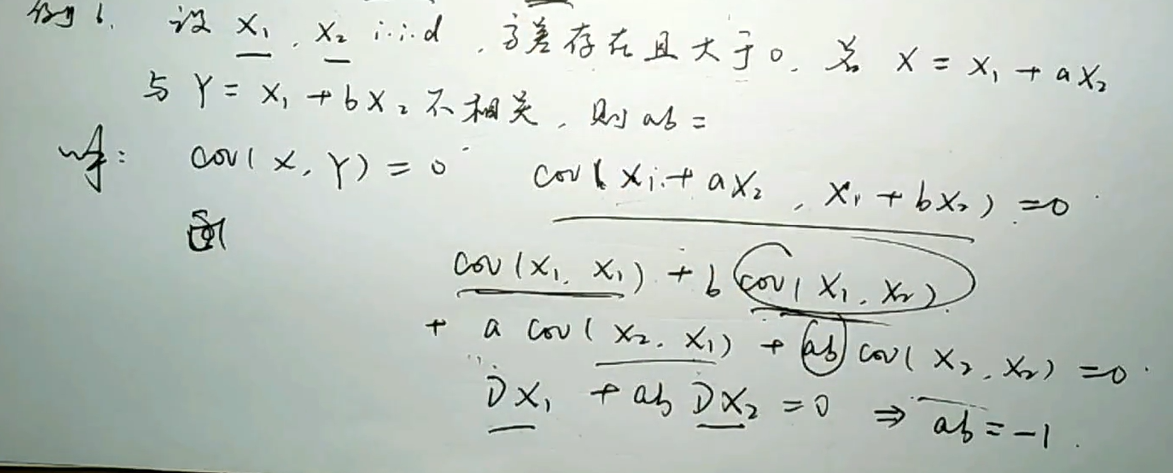 例 6. 设 X₁, X₂ i.i.d, 方差存在且大于0. 若 X = X₁ + aX₂
与 Y = X₁ + bX₂ 不相关, 则 ab =
cov(X, Y) = 0 cov(X₁ + aX₂, X₁ + bX₂) = 0
cov(X₁, X₁) + b cov(X₁, X₂)
+ a cov(X₂, X₁) + ab cov(X₂, X₂) = 0
DX₁ + ab DX₂ = 0 ⇒ ab = -1.